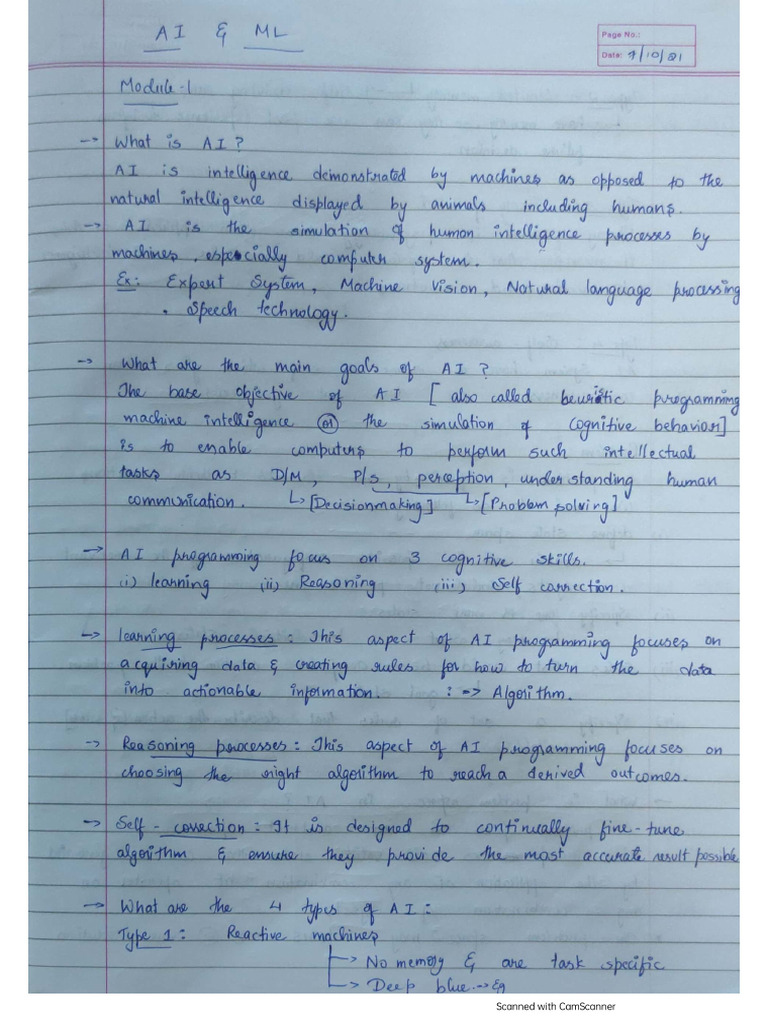 AI & ML
Page No.:
Date: 7/10/21
Module-1
→ What is AI?
AI is intelligence demonstrated by machines as opposed to the
natural intelligence displayed by animals including humans.
→ AI is the simulation of human intelligence processes by
machines, especially computer system.
Ex: Expert System, Machine Vision, Natural language processing
. Speech technology.
→ What are the main goals of AI?
The base objective of AI [also called heuristic programming
machine intelligence or the simulation of cognitive behavior]
is to enable computers to perform such intellectual
tasks as D/M, P/s, perception, understanding human
communication. ↳[Decisionmaking] ↳[Problem solving]
→ AI programming focus on 3 cognitive skills.
(i) learning (ii) Reasoning (iii) Self correction.
→ learning processes: This aspect of AI programming focuses on
acquiring data & creating rules for how to turn the data
into actionable information. : => Algorithm.
→ Reasoning processes: This aspect of AI programming focuses on
choosing the right algorithm to reach a derived outcomes.
→ Self-correction: It is designed to continually fine-tune
algorithm & ensure they provide the most accurate result possible
→ What are the 4 types of AI:
Type 1: Reactive machines
→ No memory & are task specific
→ Deep blue → Eg
Scanned with CamScanner